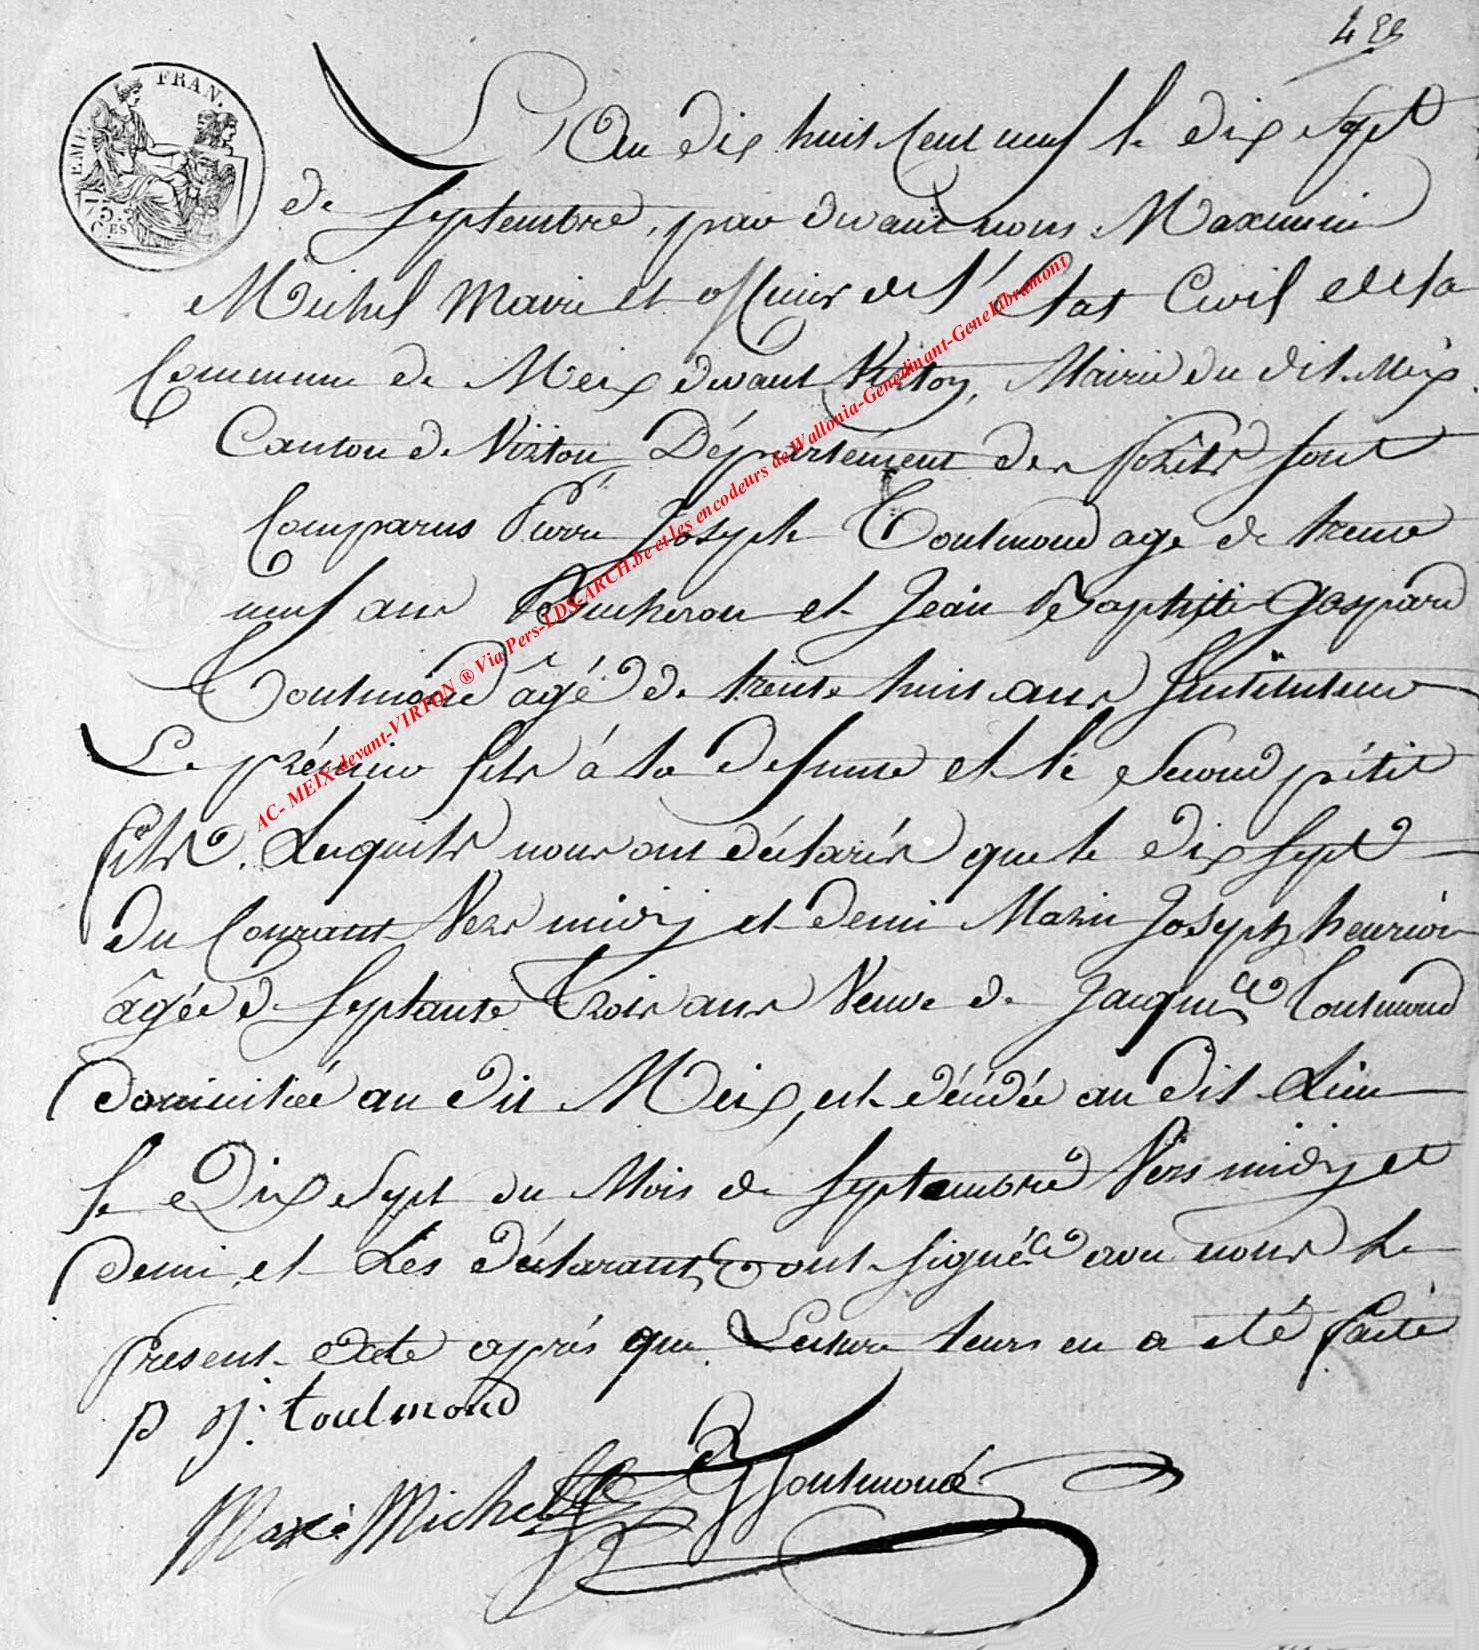 4 Es
EMP. FRAN.
75.
C.ES
L'An dix huit Cent neuf le dix Sept
de Septembre, par devant nous Maximin
Michel Maire et officier de l'Etat Civil de la
Commune de Meix devant Virton, Mairie du dit Meix
Canton de Virton Département des forêts sont
Comparus Pierre Joseph Toulmond age de trente
neuf ans Bucheron et Jean Baptiste Gaspard
Toulmond âgé de trente huit ans Instituteur
Le prémier fils à la defunte et le Second pétit
fils. Lesquels nous ont déclarés que le dix Sept
du Courant Vers midy et demi Marie Joseph henrion
âgée de Septante Trois ans Veuve de Jacques Toulmond
domiciliée au dit Meix, est décédée au dit Lieu
le Dix Sept du Mois de Septembre Vers midy et
demi, et Les déclarants ont signés avec nous le
present acte après que Lecture leurs en a été faite
p J. toulmond
Maxi Michel
JG Toulmond
AC- MEIX-devant-VIRTON ® Via Pers-LDS-ARCH.be et les encodeurs de Wallonia-Genedinant-GeneLibramont